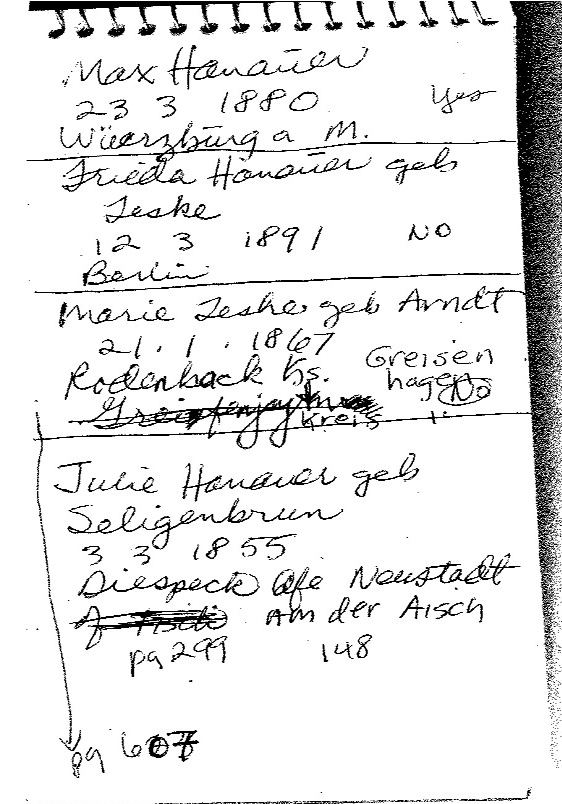 Max Hanauer
23 3 1880 Yes
Wüerzburg a M.
Frieda Hanauer geb
Jeske
12 3 1891 NO
Berlin
Marie Jeske geb Arndt
21. 1. 1867
Rodenback Ks. Greisen
hagen No
Kreis
Julie Hanauer geb
Seligenbrun
3 3 1855
Diespeck Neustadt
Am der Aisch
pg 299 148
pg 607